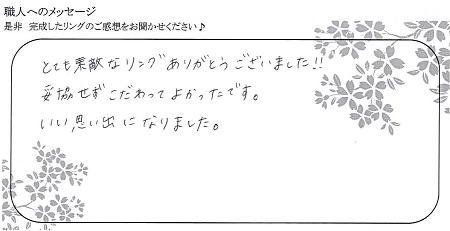 職人へのメッセージ
是非 完成したリングのご感想をお聞かせください♪
とても素敵なリングありがとうございました!!
妥協せずこだわってよかったです。
いい思い出になりました。